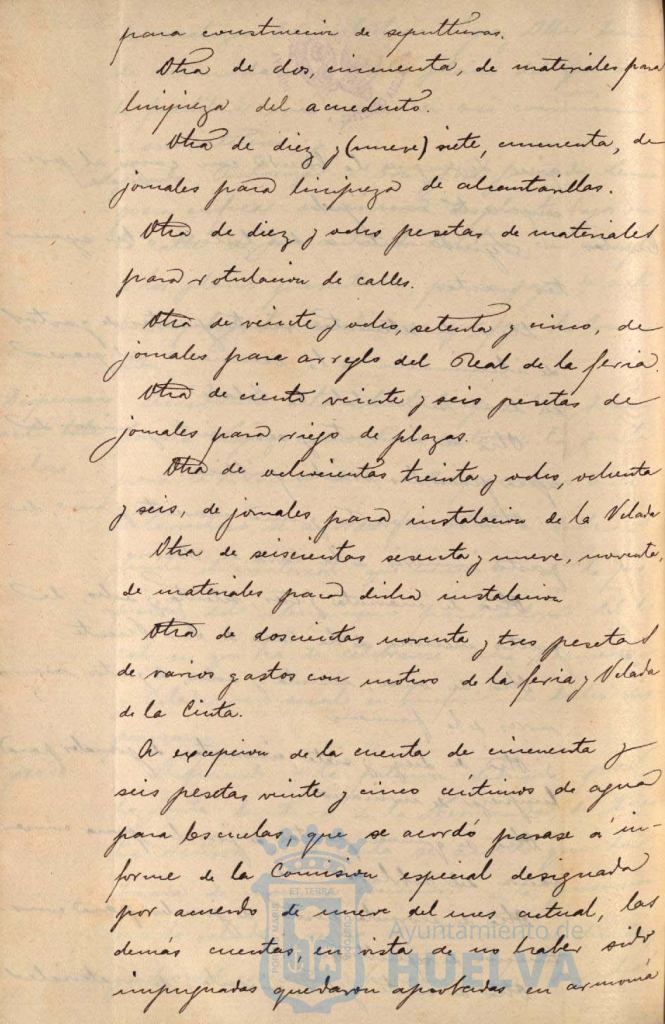 para construccion de sepulturas.
Otra de dos, cincuenta, de materiales para
limpieza del acueducto.
Otra de diez y (nueve) siete, cincuenta, de
jornales para limpieza de alcantarillas.
Otra de diez y ocho pesetas de materiales
para rotulacion de calles.
Otra de veinte y ocho, setenta y cinco, de
jornales para arreglo del Real de la feria.
Otra de ciento veinte y seis pesetas de
jornales para riego de plazas.
Otra de ochocientas treinta y ocho, ochenta
y seis, de jornales para instalacion de la Velada
Otra de seiscientas sesenta y nueve, noventa,
de materiales para dicha instalacion
Otra de doscientas noventa y tres pesetas
de varios gastos con motivo de la feria y Velada
de la Cinta.
A excepcion de la cuenta de cincuenta y
seis pesetas veinte y cinco céntimos de agua
para Escuelas, que se acordó pasase á in-
forme de la Comision especial designada
por acuerdo de nueve del mes actual, las
demás cuentas, en vista de no haber sido
impugnadas quedaron aprobadas en armonía
PORTUS MARIS ET TERRAE CUSTODIA
Ayuntamiento de
HUELVA